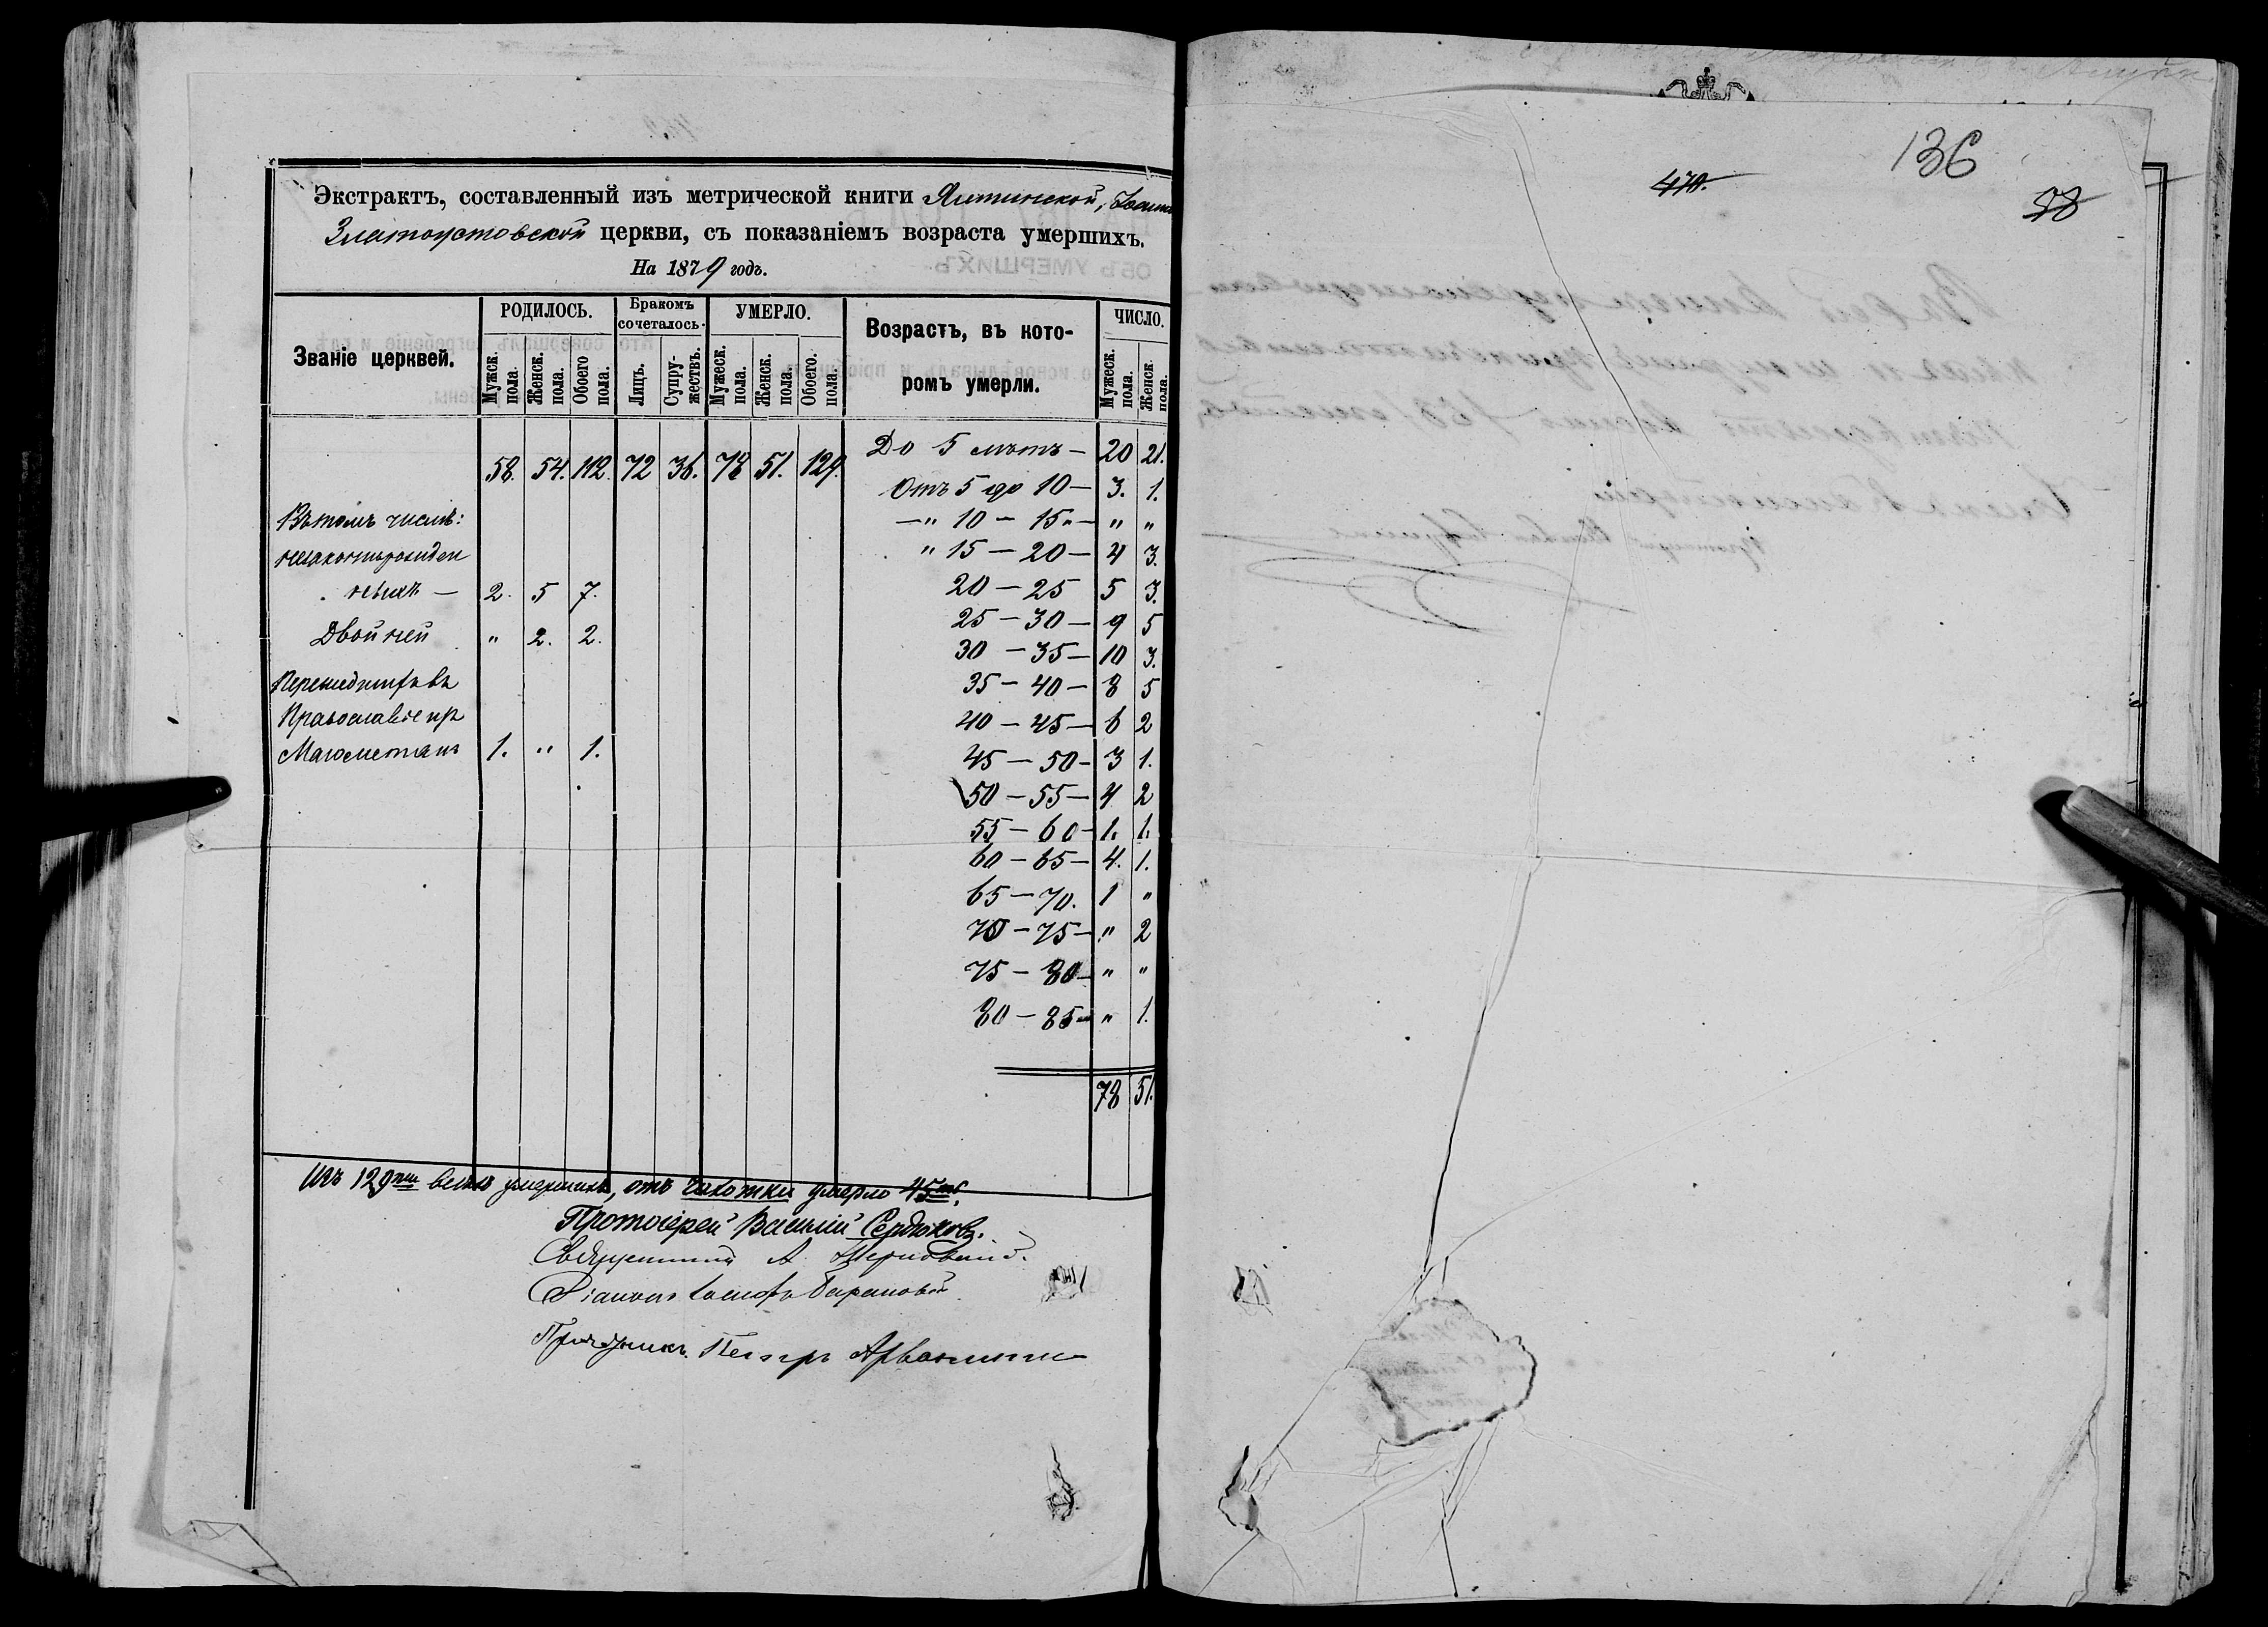 Экстрактъ, составленный изъ метрической книги Ялтинской, Іоанно
Златоустовской церкви, съ показаніемъ возраста умершихъ.
На 1879 годъ.
Званіе церквей.
РОДИЛОСЬ.
Бракомъ сочеталось.
УМЕРЛО.
Возрастъ, въ которомъ умерли.
ЧИСЛО.
Мужск. пола. Женск. пола. Обоего пола. Лицъ. Супружествъ. Мужеск. пола. Женск. пола. Обоего. пола. Мужеск. пола. Женск. пола.
58. 54. 112. 72 36. 78 51. 129.
До 5 лѣтъ — 20 21.
Отъ 5 до 10 — 3. 1.
—„ 10 — 15 „ — „ „
„ 15 — 20 — 4 3.
20 — 25 5 3.
25 — 30 — 9 5
30 — 35 — 10 3.
35 — 40 — 8 5
40 — 45 — 6 2
45 — 50 — 3 1.
50 — 55 — 4 2
55 — 60 — 1. 1.
60 — 65 — 4. 1.
65 — 70. 1 „
70 — 75 — „ 2
75 — 80 — „ „
80 — 85 — „ 1.
78 51.
Въ томъ числѣ:
незаконнорожден
ныхъ — 2. 5 7.
Двойней „ 2. 2.
Перешедшихъ въ
Православіе изъ
Магометанъ 1. „ 1.
Изъ 129ти всѣхъ умершихъ, отъ чахотки умерло 45ть.
Протоіерей Василій Сердюковъ.
Священникъ А. Терновскій.
Діаконъ Іосифъ Барановъ
Причетникъ Петръ Арванити
136
470.
58
ОБЪ УМЕРШИХЪ.